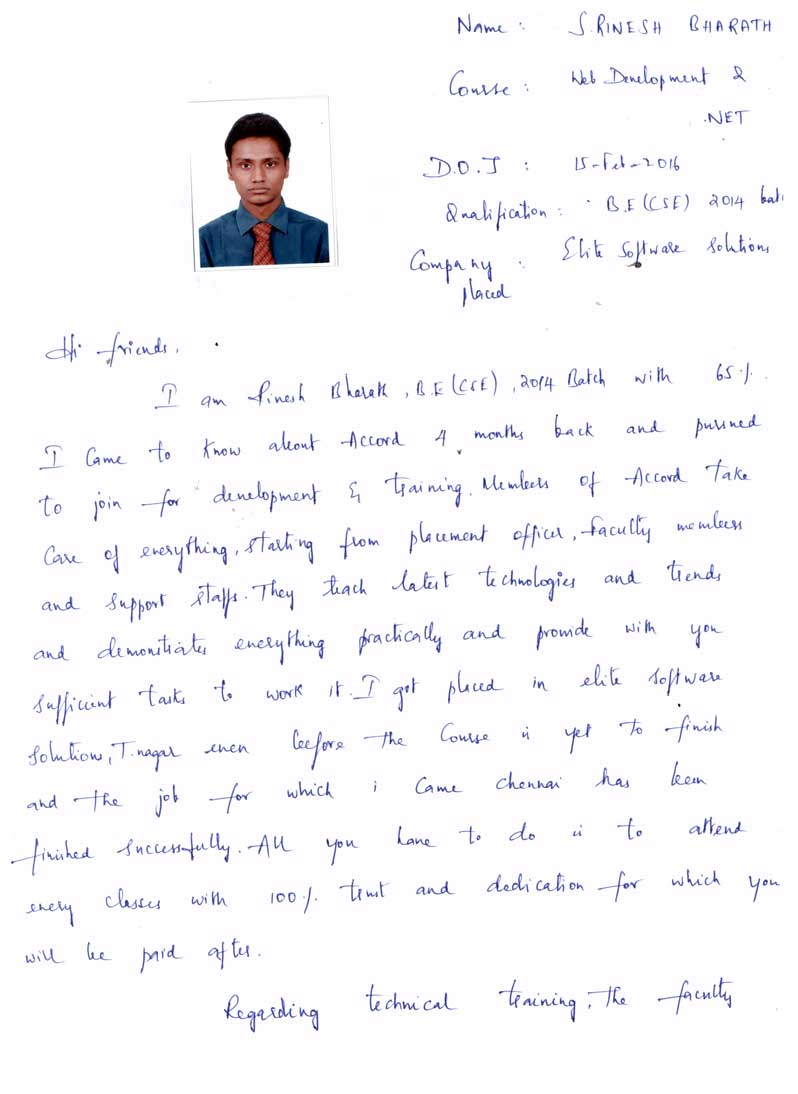 Name : S.RINESH BHARATH
Course : Web Development &
.NET
D.O.J : 15-Feb-2016
Qualification : B.E (CSE) 2014 bat
Company placed : Elite Software Solutions
Hi friends,
I am Rinesh Bharath, B.E (CSE), 2014 Batch with 65%.
I Came to know about Accord 4 months back and pursued
to join for development & training. Members of Accord Take
Care of everything, starting from placement officer, Faculty members
and support staffs. They teach latest technologies and trends
and demonstrates everything practically and provide with you
sufficient tasks to work it. I got placed in elite software
solution, T.nagar even before the Course is yet to finish
and the job for which i Came chennai has been
finished successfully. All you have to do is to attend
every classes with 100% trust and dedication for which you
will be paid after.
Regarding technical training, The faculty